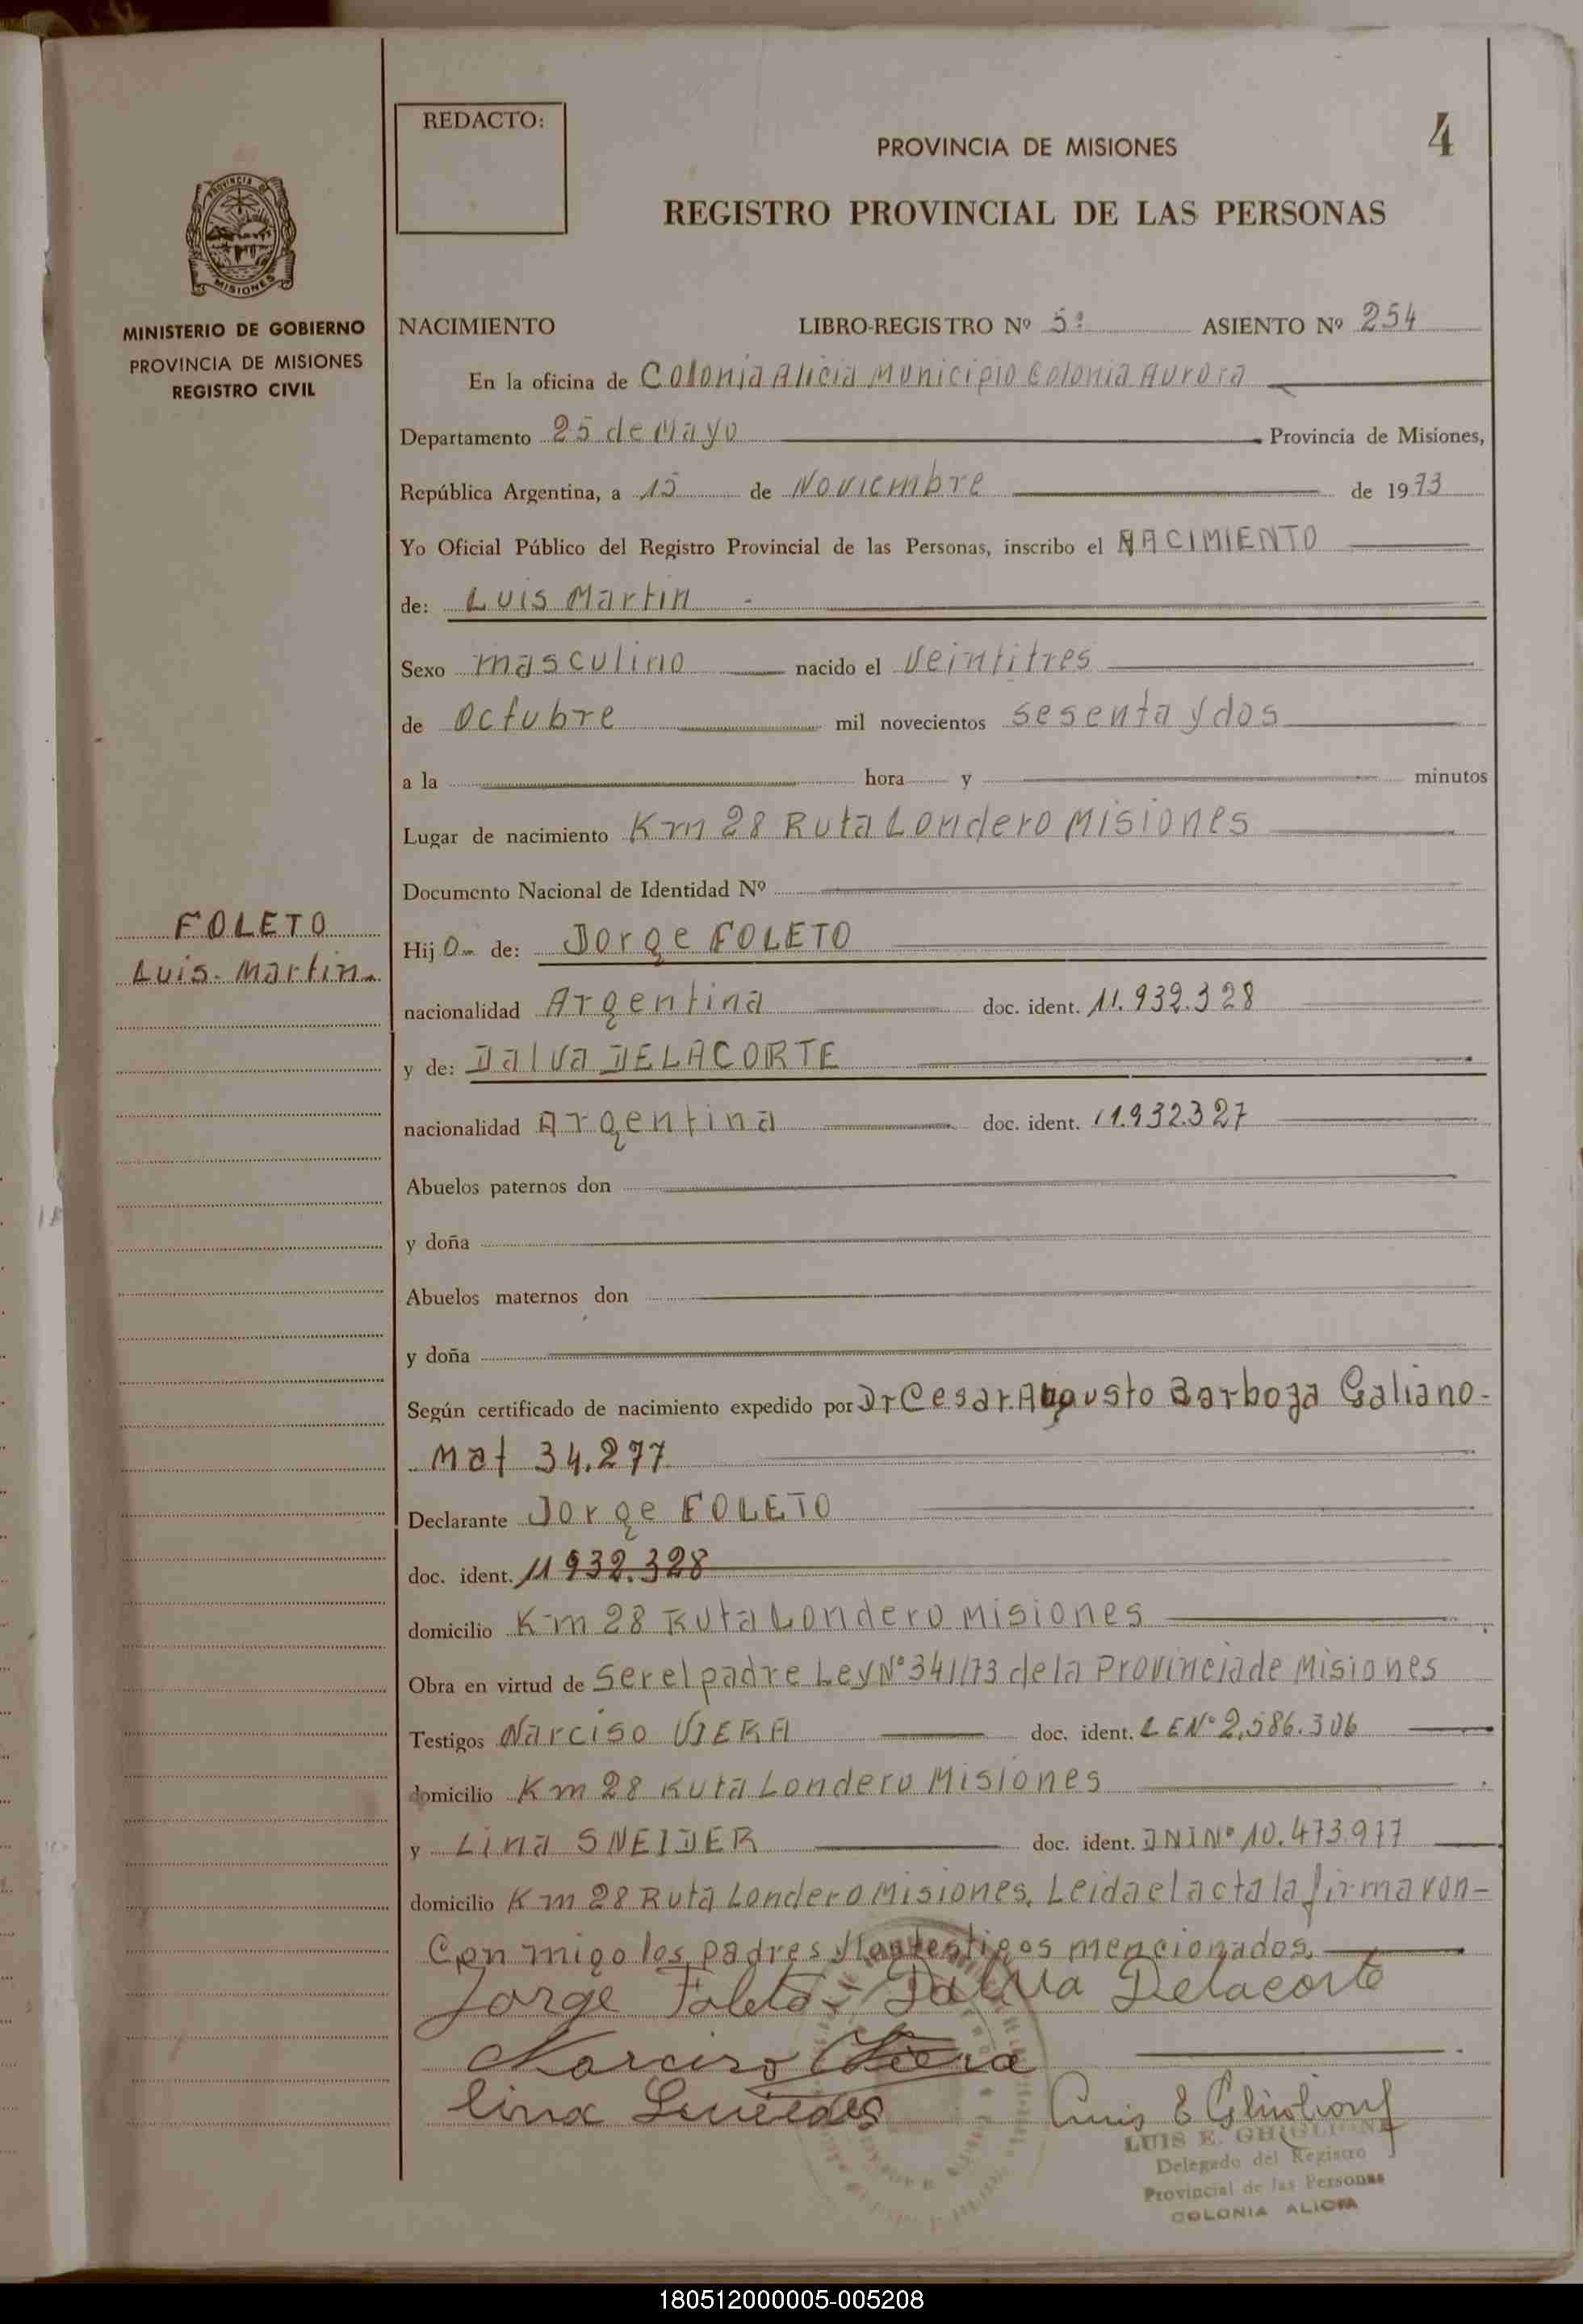 REDACTO:
PROVINCIA DE MISIONES
4
REGISTRO PROVINCIAL DE LAS PERSONAS
PROVINCIA DE
MISIONES
MINISTERIO DE GOBIERNO
PROVINCIA DE MISIONES
REGISTRO CIVIL
NACIMIENTO LIBRO-REGISTRO Nº 5º ASIENTO Nº 254
En la oficina de Colonia Alicia Municipio Colonia Aurora
Departamento 25 de Mayo Provincia de Misiones,
República Argentina, a 15 de Noviembre de 1973
Yo Oficial Público del Registro Provincial de las Personas, inscribo el NACIMIENTO
de: Luis Martin -
Sexo masculino nacido el veintitres
de Octubre mil novecientos sesenta y dos
a la hora y minutos
Lugar de nacimiento Km 28 Ruta Londero Misiones
Documento Nacional de Identidad Nº
FOLETO
Luis. Martin.
Hijo de: Jorge FOLETO
nacionalidad Argentina doc. ident. 11.932.328
y de: Dalva DELACORTE
nacionalidad Argentina doc. ident. 11.932.327
Abuelos paternos don
y doña
Abuelos maternos don
y doña
Según certificado de nacimiento expedido por Dr Cesar. Augusto Barboza Galiano-
Mat 34.277
Declarante Jorge FOLETO
doc. ident. 11 932.328
domicilio Km 28 Ruta Londero Misiones
Obra en virtud de Ser el padre Ley Nº 341/73 de la Provincia de Misiones
Testigos Narciso VIERA doc. ident. LE Nº 2,586.306
domicilio Km 28 Ruta Londero Misiones
y Lina SNEIDER doc. ident. DNI Nº 10.473.977
domicilio Km 28 Ruta Londero Misiones, Leida el acta la firmaron-
Con migo los padres y los testigos mencionados.
Jorge Foleto - Dalva Delacorte
Narciso Viera
Lina
Luis E Ghiglioni
LUIS E. GHIGLIONE
Delegado del Registro
Provincial de las Personas
COLONIA ALICIA
180512000005-005208